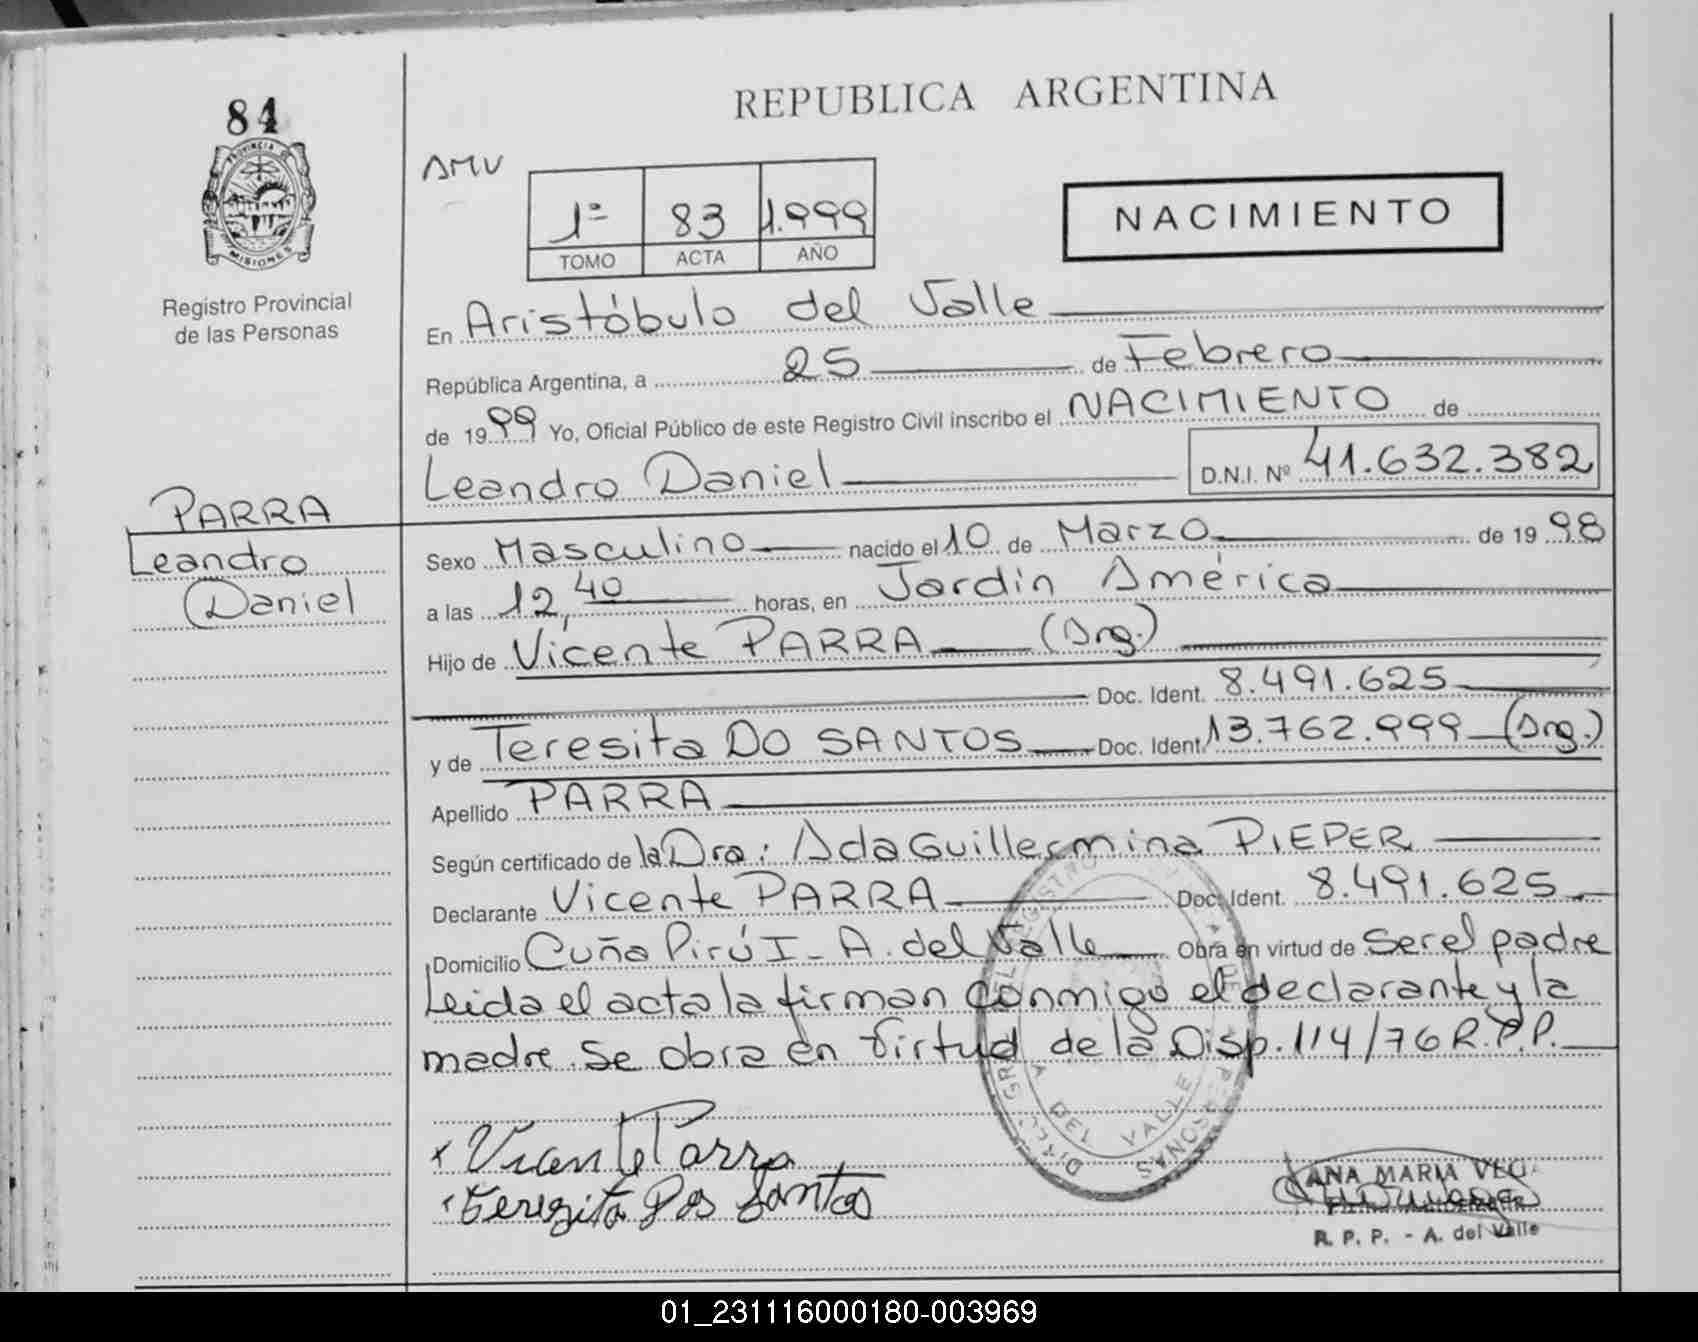 84
PROVINCIA DE
MISIONES
Registro Provincial
de las Personas
PARRA
Leandro
Daniel
REPUBLICA ARGENTINA
AMV
1º 83 1.999
TOMO ACTA AÑO
NACIMIENTO
En Aristóbulo del Valle
República Argentina, a 25 de Febrero
de 1999 Yo, Oficial Público de este Registro Civil inscribo el NACIMIENTO de
Leandro Daniel D.N.I. Nº 41.632.382
Sexo Masculino nacido el 10 de Marzo de 1998
a las 12,40 horas, en Jardín América
Hijo de Vicente PARRA (Arg.)
Doc. Ident. 8.491.625
y de Teresita DO SANTOS Doc. Ident. 13.762.999 (Arg.)
Apellido PARRA
Según certificado de la Dra: Ada Guillermina PIEPER
Declarante Vicente PARRA Doc. Ident. 8.491.625
Domicilio Cuña Pirú I - A. del Valle Obra en virtud de ser el padre
Leida el acta la firman conmigo el declarante y la
madre. Se obra en virtud de la Disp. 114/76 R.P.P.
x Vicente Parra
Terezita Dos Santos
VALLE
ANA MARIA
R. P. P. - A. del Valle
01_231116000180-003969